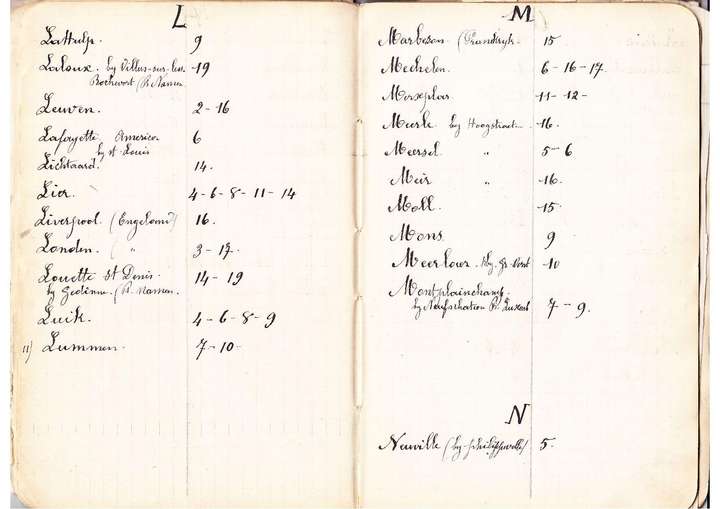 L
La Hulp. 9
Laloux. by Villers-sur-Lesse 19
Rochevort (P. Namen
Leuven. 2-16
Lafayette America 6
by St Louis
Lichtaard. 14.
Lier. 4-6-8-11-14
Liverpool. (Engeland) 16.
Londen. ( " 3-17.
Louette St Denis. 14-19
by Gedinne. (P. Namen.
Luik. 4-6-8-9
11) Lummen. 7-10-
M
15
Mechelen. 6-16-17.
Merxplas. 11-12-
Meerle by Hoogstraeten. 16.
Meersel " 5-6
Meir " 16.
Moll. 15.
Mons. 9
10
Montplainchamp.
by Neufchateau P. Luxemb 7-9.
N
Neuville (by Philippeville) 5.